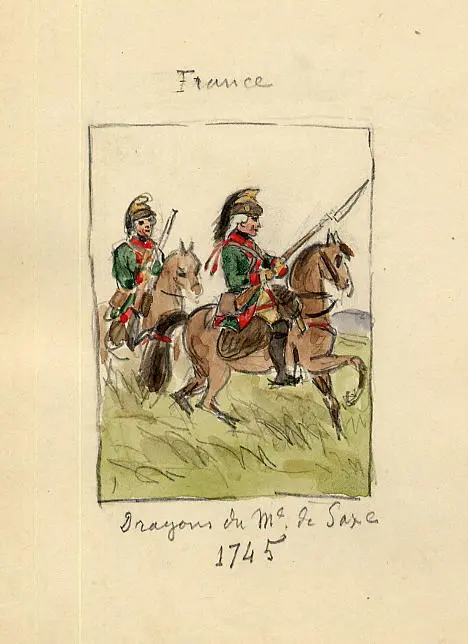 France
Dragons du Mal. de Saxe
1745